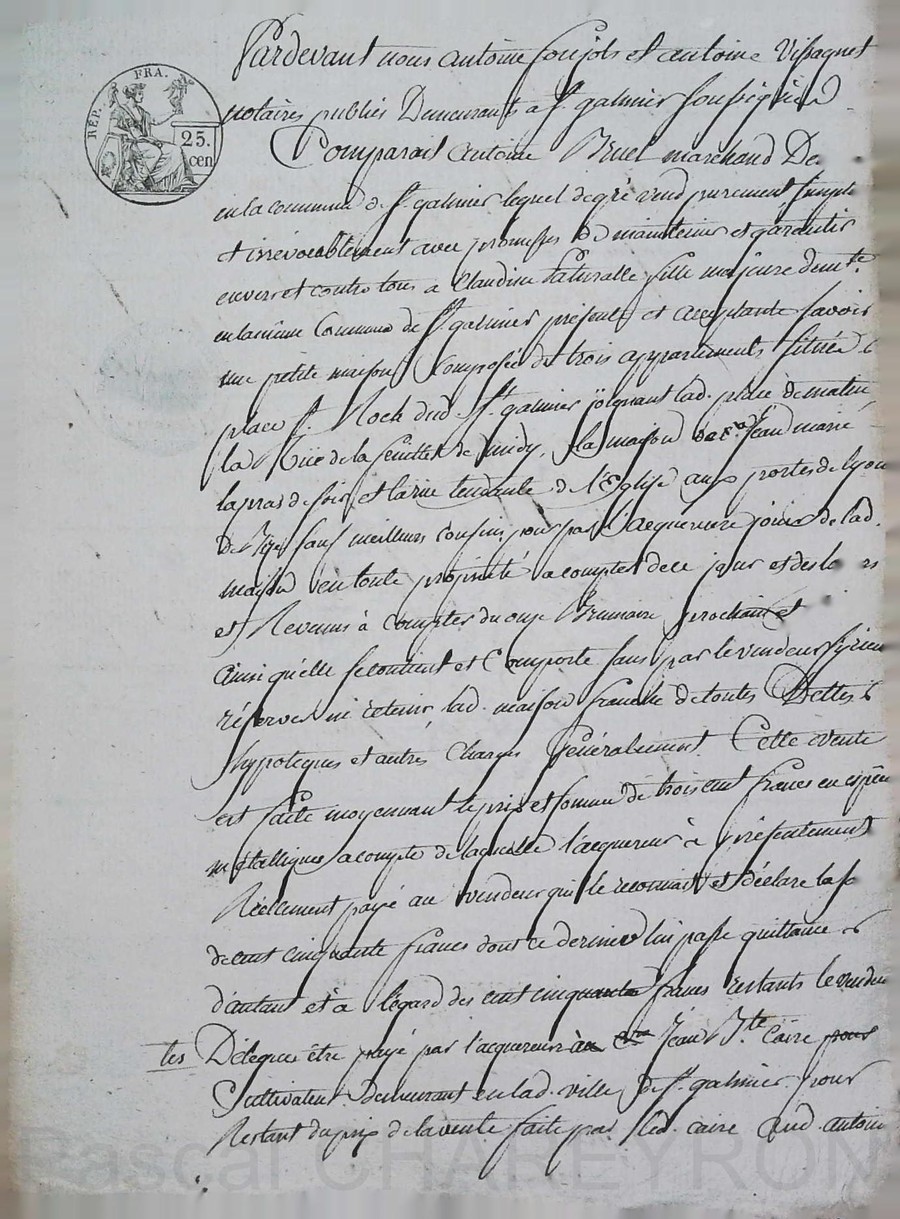 RÉP. FRA.
25.
cen
Pardevant nous antoine soujols et antoine Vissaguet
notaires publics Demeurants a St. galmier soussignés
Comparait antoine Bruel marchand De
en la commune de St. galmier lequel de gré vend purement simple
et irrévocablement avec promesses de maintenir et garantir
envers et contre tous a Claudine Faturalle fille majeure demte.
en la même Commune de St. galmier présente et acceptante savoir
une petite maison Composée de trois appartements située
place St. Roch dud. St. galmier joignant lad. place de matin
la Rüe de la feuillet de midy, la maison de Jean marie
lapras de soir et la rue tendante de l'Eglise aux portes de lyon
de Bize sauf meilleurs confins pour par l'acquereure jouir de lad.
maison en toute propriété a compter de ce jour et des
et Revenus à compter du onze Brumaire prochain et
ainsi quelle se contient et Comporte sans par le vendeur s'y rien
réserver ni retenir lad. maison franche de toutes Dettes
hypoteques et autres Charges Généralement Cette vente
est faite moyennant le prix et somme de trois cent francs en espèces
métalliques a compte de laquelle l'acquereur à présentement
Réellement payé au vendeur qui le reconnait et déclare la
de cent cinquante francs dont ce dernier lui passe quittance
d'autant et à l'égard des cent cinquante francs restants le vendeur
les Délègue être payé par l'acquereur au Jean Bte. Caire pour
Cultivateur Demeurant en lad. ville de St. galmier pour
Restant du prix de la vente faite par led. Caire aud. antoine
Pascal CHAREYRON